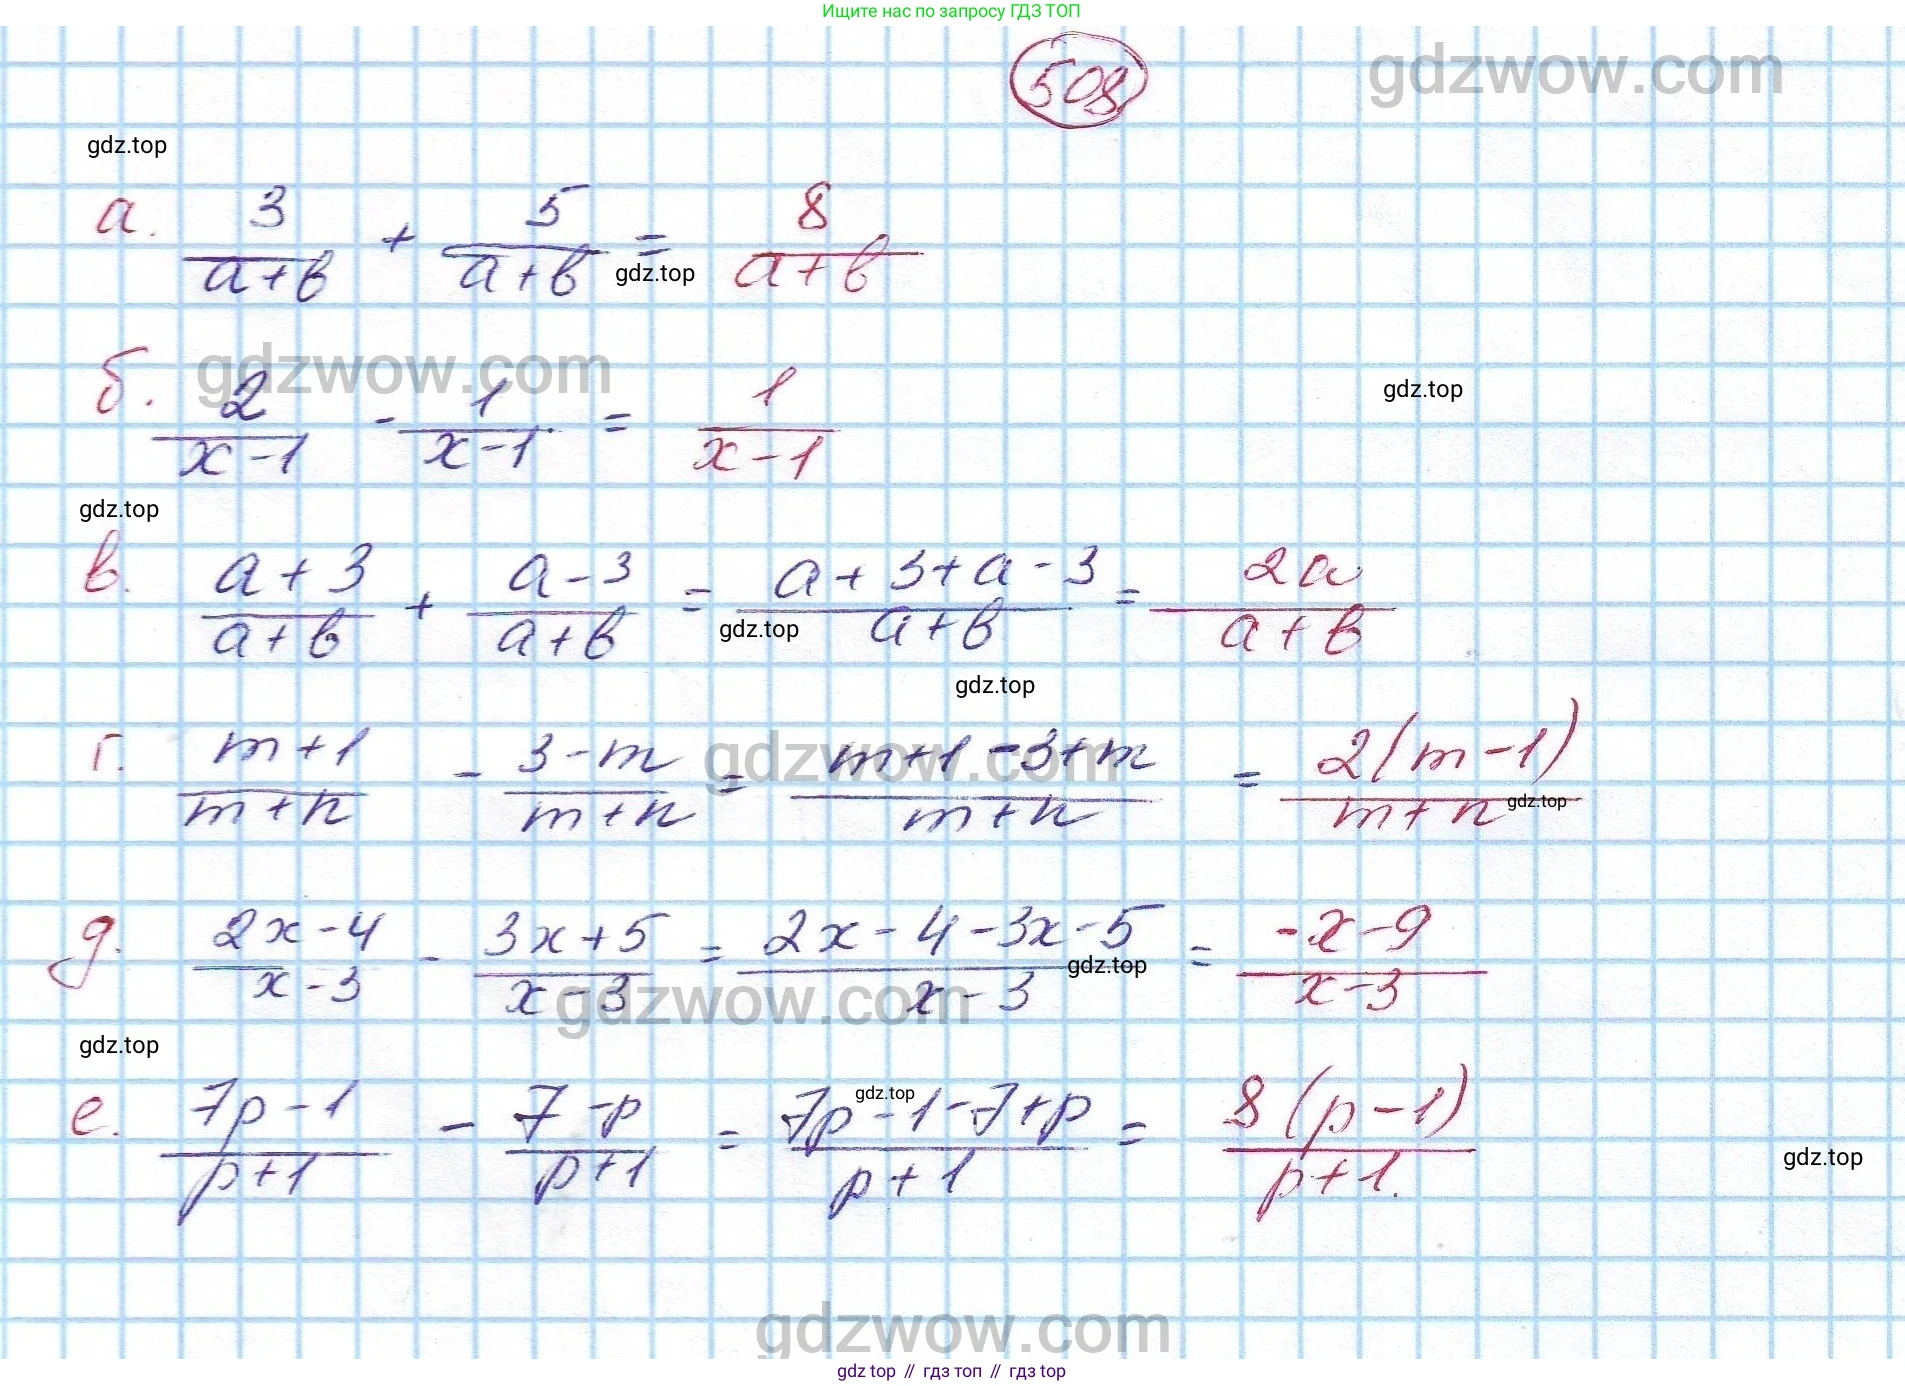 Ищите нас по запросу ГДЗ ТОП
508
gdzwow.com
gdz.top
а. 3/(a+b) + 5/(a+b) = 8/(a+b)
gdz.top
gdzwow.com
б. 2/(x-1) - 1/(x-1) = 1/(x-1)
gdz.top
gdz.top
в. (a+3)/(a+b) + (a-3)/(a+b) = (a+3+a-3)/(a+b) = 2a/(a+b)
gdz.top
gdz.top
г. (m+1)/(m+n) - (3-m)/(m+n) = (m+1-3+m)/(m+n) = 2(m-1)/(m+n)
gdzwow.com
gdz.top
д. (2x-4)/(x-3) - (3x+5)/(x-3) = (2x-4-3x-5)/(x-3) = (-x-9)/(x-3)
gdz.top
gdzwow.com
gdz.top
е. (7p-1)/(p+1) - (7-p)/(p+1) = (7p-1-7+p)/(p+1) = 8(p-1)/(p+1).
gdz.top
gdz.top
gdzwow.com
gdz.top // гдз топ // гдз top